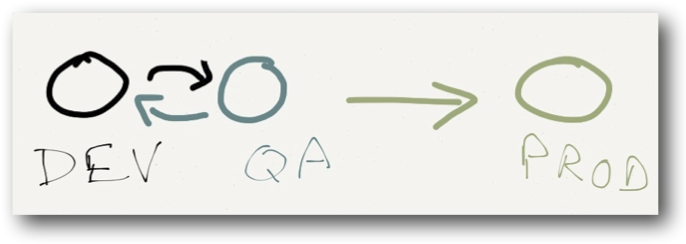 DEV QA PROD